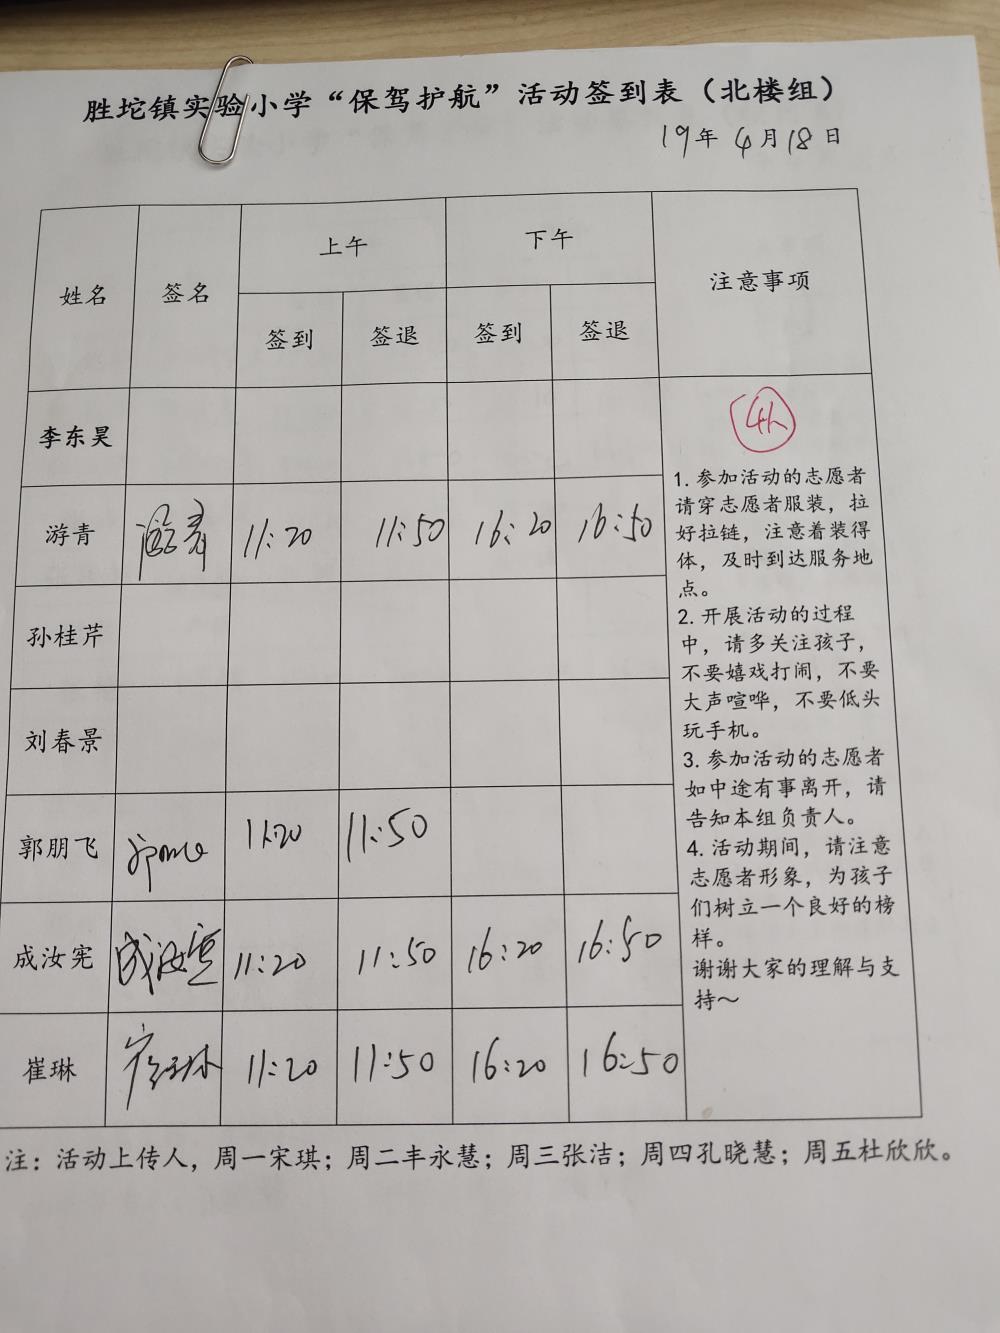 胜坨镇实验小学“保驾护航”活动签到表（北楼组）
19年 4月18日
姓名 签名 上午 下午 注意事项
签到 签退 签到 签退
李东昊
游青 游青 11:20 11:50 16:20 16:50
孙桂芹
刘春景
郭朋飞 11:20 11:50
成汝宪 成汝宪 11:20 11:50 16:20 16:50
崔琳 崔琳 11:20 11:50 16:20 16:50
4人
1. 参加活动的志愿者
请穿志愿者服装，拉
好拉链，注意着装得
体，及时到达服务地
点。
2. 开展活动的过程
中，请多关注孩子，
不要嬉戏打闹，不要
大声喧哗，不要低头
玩手机。
3. 参加活动的志愿者
如中途有事离开，请
告知本组负责人。
4. 活动期间，请注意
志愿者形象，为孩子
们树立一个良好的榜
样。
谢谢大家的理解与支
持～
注：活动上传人，周一宋琪；周二丰永慧；周三张洁；周四孔晓慧；周五杜欣欣。